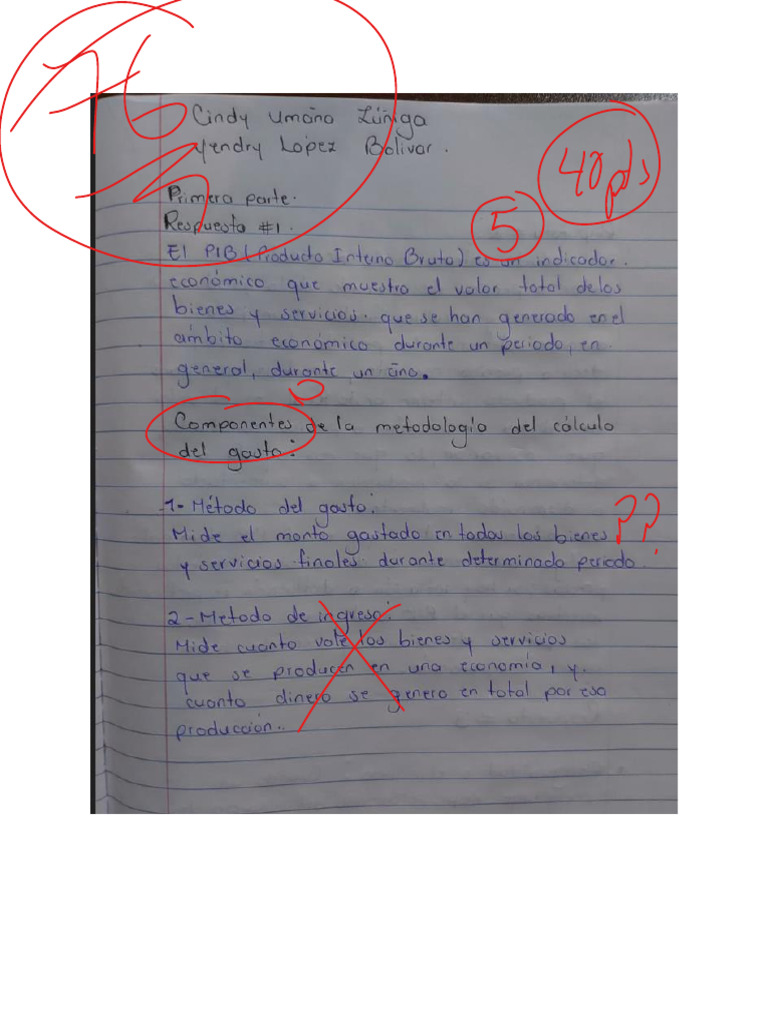 76
Cindy Umaña Zúñiga
Yendry López Bolivar.
40 pts
Primera parte.
Respuesta #1.
5
El PIB (Producto Interno Bruto) es un indicador.
económico que muestra el valor total de los
bienes y servicios que se han generado en el
ámbito económico durante un periodo, en
general, durante un año.
Componentes de la metodología del cálculo
del gasto:
1- Método del gasto:
Mide el monto gastado en todos los bienes
y servicios finales durante determinado periodo
??
2- Metodo de ingreso:
Mide cuanto vale los bienes y servicios
que se producen en una economía, y
cuanto dinero se genero en total por esa
producción.